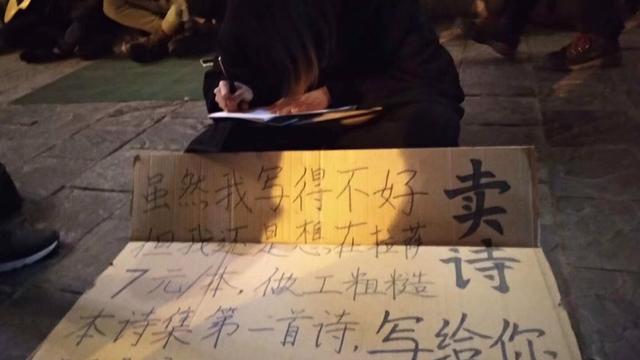 虽然我写得不好
但我还是想在拉萨
卖诗
7元/本，做工粗糙
本诗集第一首诗，写给你